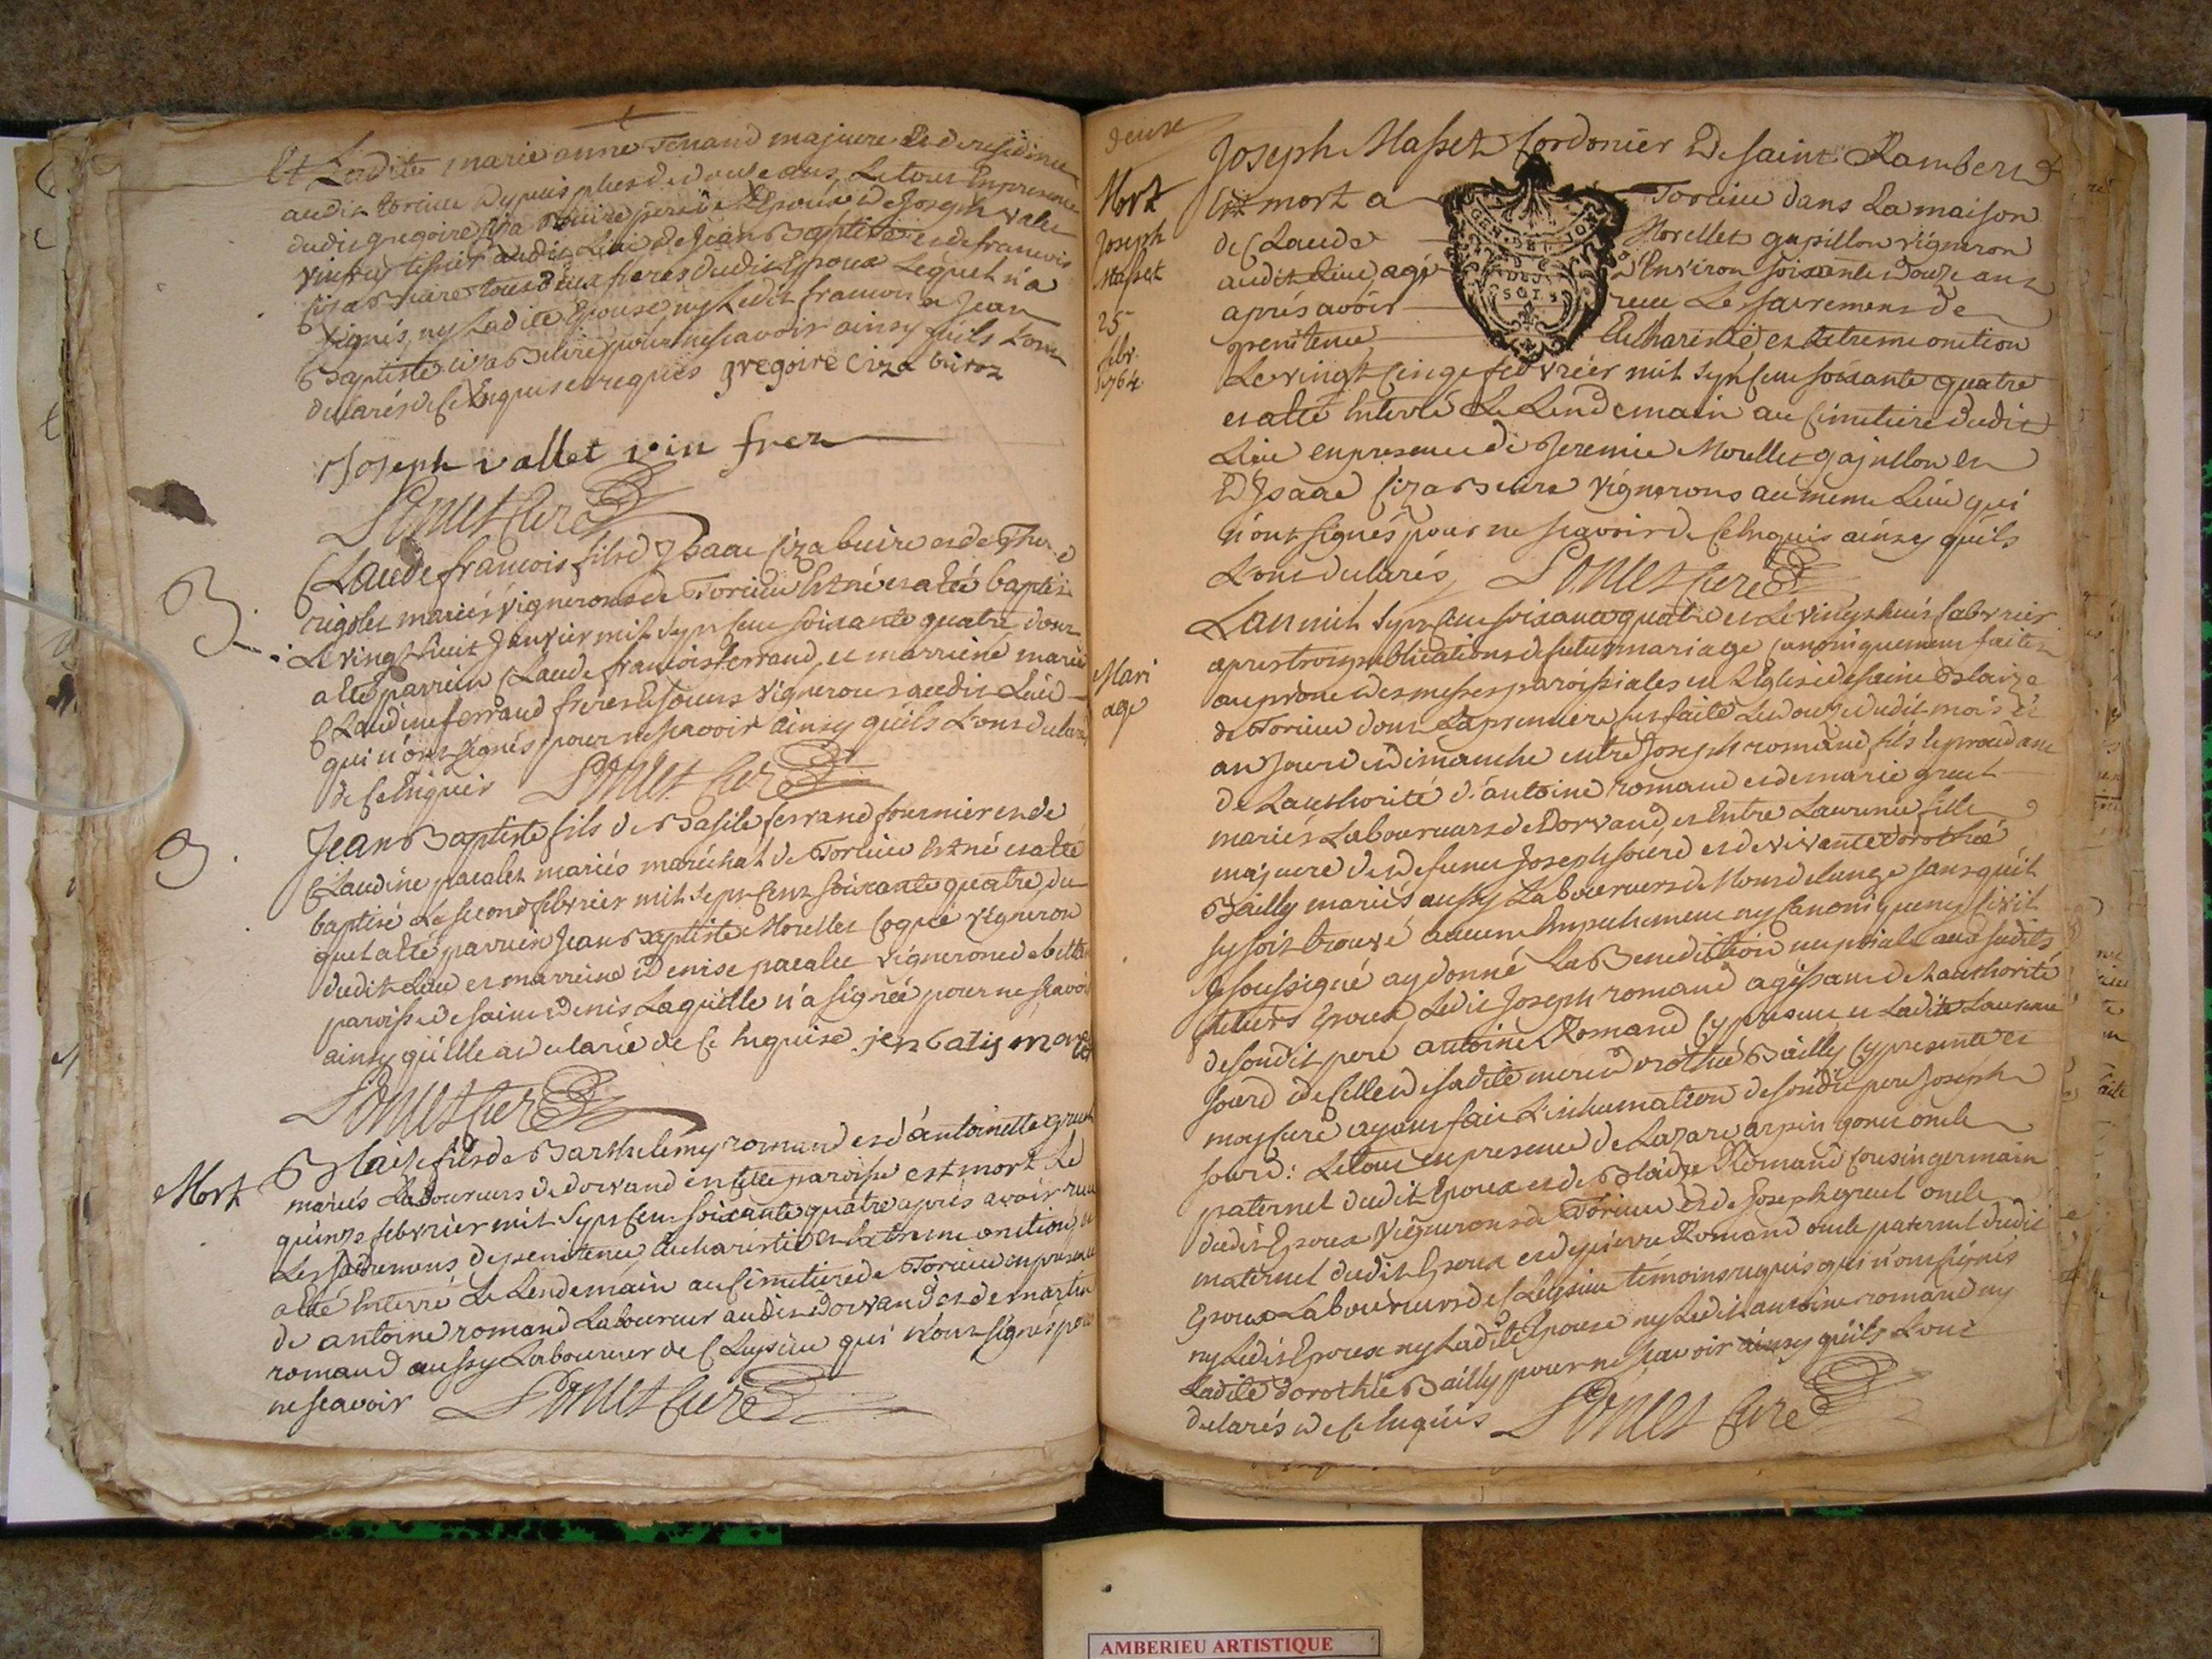 Et Ladite marie anne ferrand majeure Et de residence
audit torcieu depuis plus de douze ans Le tout En presence
dudit gregoire Ciza Buire pere de l'Epoux de Joseph vallet
vinfrey tissier audit Lieu de Jean Baptiste et de francois
Ciza Buire tous deux freres dudit Epoux Lequel n'a
signés, ny Ladite Epouse ny Ledit francois et Jean
Baptiste ciza Buire pour ne scavoir ainsy quils L'ont
declarés de Ce Enquis et requis gregoire Ciza buroz
Joseph vallet vin frez
Curé
Claude francois fils d'Isaac Ciza buire et de
rigolet mariés vignerons de Torcieu Est né et a été baptisé
B.
Le vingt huit Janvier mil sept Cent soixante quatre dont
a été parrain Claude francois ferrand, et marreine marie
Claudine ferrand freres Et soeurs vignerons audit Lieu
qui n'ont signés pour ne scavoir ainsy quils L'ont declaré
de Ce Enquis Curé
Jean Baptiste fils de Basile ferrand fournier et de
Claudine pacalet mariés maréchal de Torcieu Est né et a été
baptisé Le second febvrier mil sept Cent soixante quatre du
quel a été parrain Jean Baptiste Morellet Coquié vigneron
dudit Lieu et marreine denise pacalet vigneronne de
paroisse de saint denis Laquelle n'a signée pour ne scavoir
ainsy quelle a declaré de Ce Enquise jen batis
Curé
Mort
Blaize fils de Barthelemy romand et d'antoinette
mariés Laboureurs de dorvand en cette paroisse est mort Le
quinze febvrier mil sept Cent soixante quatre aprés avoir reçu
Les sacremens de penitence Eucharistie et extreme onction, et
a été Enterré Le Lendemain au Cimetiere de Torcieu en presence
de antoine romand Laboureur audit dorvand et de martin
romand aussy Laboureur de Cleysieu qui n'ont signés pour
ne scavoir Curé
Joseph Masset Cordonier De saint Rambert
Mort
Joseph
Masset
25
febr.
1764
Est mort a Torcieu dans La maison
de Claude Morellet gapillon vigneron
audit Lieu, agé d'Environ soixante douze ans
aprés avoir reçu Le sacremens de
penitence Eucharistie et extreme onction
Le vingt Cinq febvrier mil sept Cent soixante quatre
et a été Enterré Le Lendemain au Cimetiere dudit
Lieu en presence de Jeremie Morellet gapillon et
D'Isaac Ciza Buire vignerons au meme Lieu qui
n'ont signés pour ne scavoir de Ce Enquis ainsy quils
L'ont declarés, Curé
L'an mil sept Cent soixante quatre et Le vingt huit febvrier
apres trois publications de futur mariage canoniquement faites
Mari
age
au prone des messes paroissiales en L'Eglise de saint Blaize
de Torcieu dont La premiere fut faite Le douze dudit mois et
an Jour de dimanche entre Joseph romand fils
de L'authorité d'antoine romand et de marie
mariés Laboureurs de Dorvand, et Entre Laurence fille
majeure de defunt Joseph sourd et de vivante dorothée
Bailly mariés aussy Laboureurs de sans quil
sy soit trouvé aucun Empechement ny Canonique ny Civil
Je soussigné ay donné La Benediction nuptiale aux susdits
futurs Epoux, Ledit Joseph romand agissant de L'authorité
de son dit pere antoine Romand Cy present et Ladite Laurence
sourd de Celle de sadite mere dorothée Bailly Cy presente et
moy Curé ayant fait L'inhumation de son dit pere Joseph
sourd: Le tout en presence de Lazare arpin oncle
paternel dudit Epoux et de Blaize Romand Cousin germain
dudit Epoux vignerons de Torcieu et de Joseph oncle
maternel dudit Epoux et de pierre Romand oncle paternel dudit
Epoux Laboureurs de Cleysieu temoins requis qui n'ont signés
ny Ledit Epoux ny Ladite Epouse ny Ledit antoine romand ny
Ladite dorothée Bailly pour ne scavoir ainsy quils L'ont
declarés de Ce Enquis Curé
AMBERIEU ARTISTIQUE